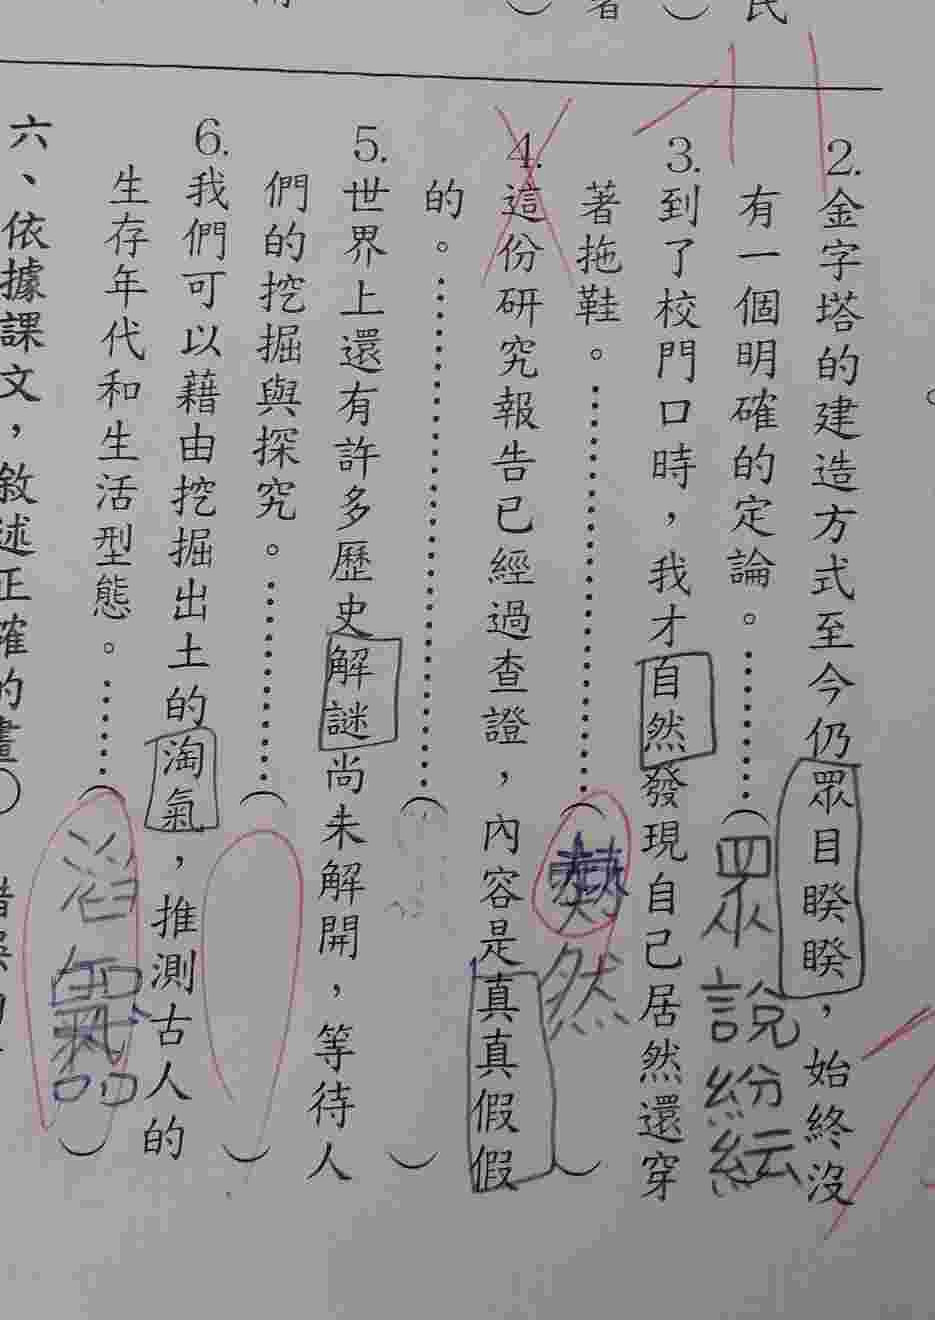 2.金字塔的建造方式至今仍眾目睽睽，始終沒
有一個明確的定論。⋯⋯⋯（眾說紛紜
3.到了校門口時，我才自然發現自己居然還穿
著拖鞋。⋯⋯⋯⋯⋯⋯⋯（然）
4.這份研究報告已經過查證，內容是真真假假
的。⋯⋯⋯⋯⋯⋯⋯⋯⋯（）
5.世界上還有許多歷史解謎尚未解開，等待人
們的挖掘與探究。⋯⋯⋯⋯（）
6.我們可以藉由挖掘出土的淘氣，推測古人的
生存年代和生活型態。⋯⋯（）
六、依據課文，敘述正確的畫○